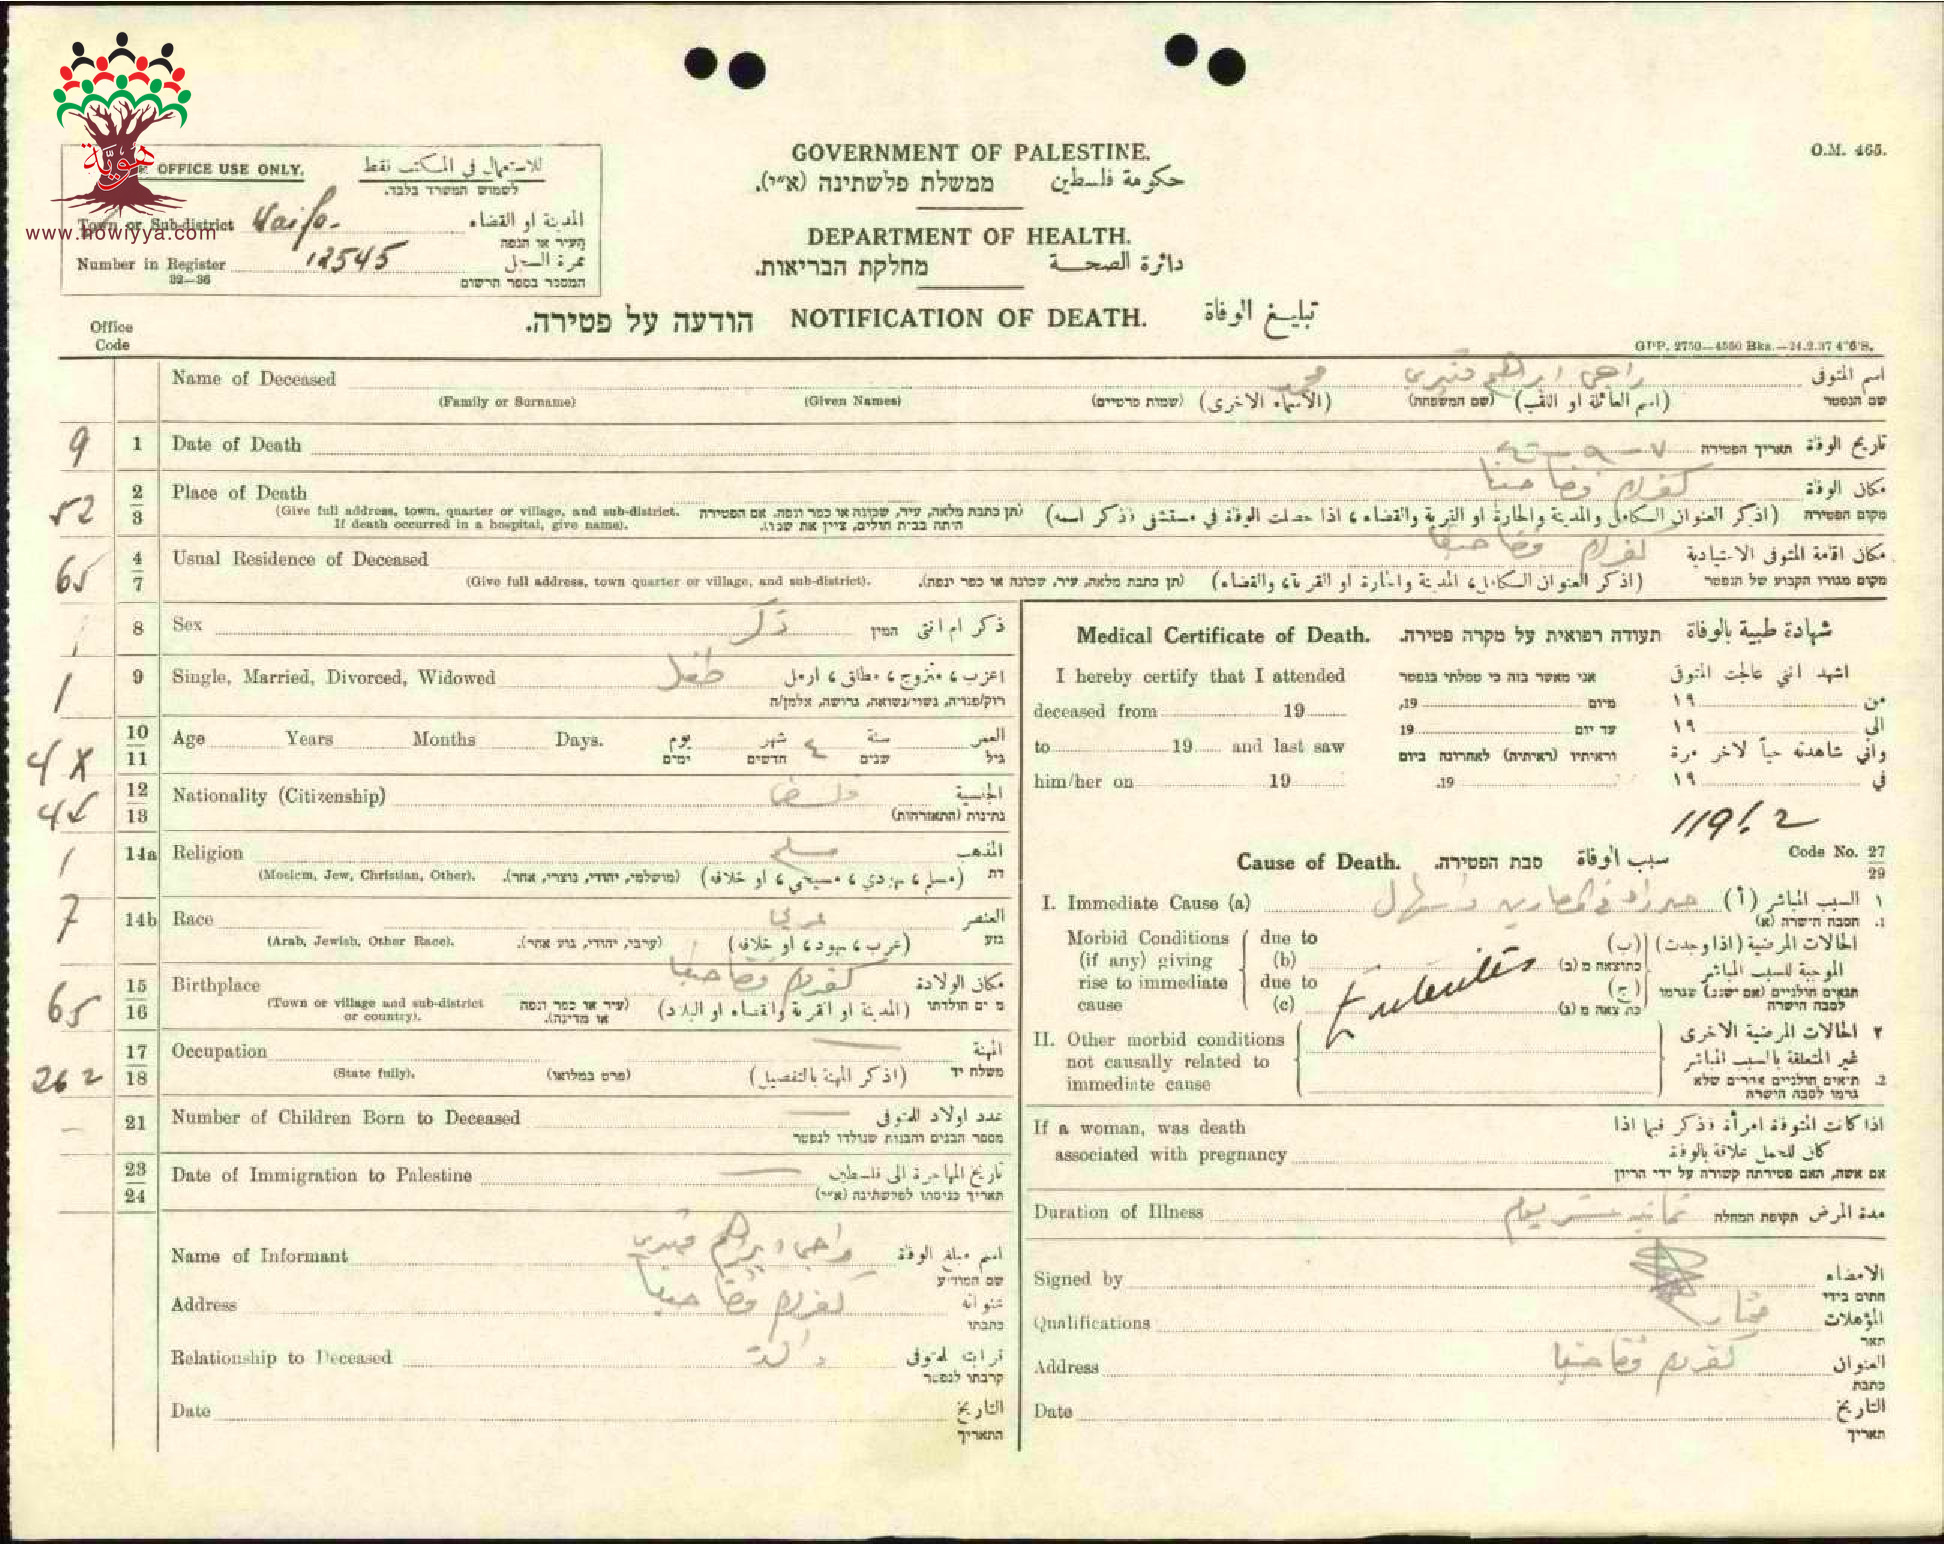 هوية
www.howiyya.com
OFFICE USE ONLY. للاستعمال في المكتب فقط
לשמוש המשרד בלבד.
Town or Sub-district Haifa. المدينة او القضاء
העיר או הנפה
Number in Register 12545 نمرة السجل
32—36 המספר בספר הרשום
GOVERNMENT OF PALESTINE.
ממשלת פלשתינה (א״י). حكومة فلسطين
DEPARTMENT OF HEALTH.
מחלקת הבריאות. دائرة الصحة
O.M. 465.
הודעה על פטירה. NOTIFICATION OF DEATH. تبليغ الوفاة
Office
Code
GPP. 2750—4550 Bks.—24.2.37 4"6'S.
Name of Deceased محمد راجي ابراهيم اسم المتوفى
(Family or Surname) (Given Names) (שמות פרטיים) (الاسماء الاخرى) (שם המשפחה) (اسم العائلة او اللقب) שם הנפטר
9 1 Date of Death תאריך הפטירה تاريخ الوفاة
52 2 3 Place of Death كفرلام قضا حيفا مكان الوفاة
(Give full address, town, quarter or village, and sub-district. If death occurred in a hospital, give name).
(תן כתבת מלאה, עיר, שכונה או כפר ונפה. אם הפטירה היתה בבית חולים, ציין את שמו).
(اذكر العنوان الكامل والمدينة والحارة او القرية والقضاء، اذا حصلت الوفاة في مستشفى فذكر اسمه) מקום הפטירה
65 4 7 Usual Residence of Deceased كفرلام قضا حيفا مكان اقامة المتوفى الاعتيادية
(Give full address, town quarter or village, and sub-district). (תן כתבת מלאה, עיר, שכונה או כפר ונפה). (اذكر العنوان الكامل، المدينة والحارة او القرية، والقضاء) מקום מגורו הקבוע של הנפטר
1 8 Sex ذكر המין ذكر ام انثى
1 9 Single, Married, Divorced, Widowed طفل اعزب، متزوج، مطلق، ارمل
רוק/פנויה, נשוי/נשואה, גרושה, אלמן/ה
4X 10 11 Age Years Months Days. يوم شهر ٤ سنة العمر
ימים חדשים שנים גיל
45 12 13 Nationality (Citizenship) الجنسية
נתינות (התאזרחות)
1 14a Religion مسلم المذهب
(Moslem, Jew, Christian, Other). (מושלמי, יהודי, נוצרי, אחר). (مسلم، يهودي، مسيحي، او خلافه) דת
7 14b Race عربي العنصر
(Arab, Jewish, Other Race). (ערבי, יהודי, גזע אחר). (عرب، يهود، او خلافه) גזע
65 15 16 Birthplace كفرلام قضا حيفا مكان الولادة
(Town or village and sub-district or country). (עיר או כפר ונפה או מדינה). (المدينة او القرية والقضاء او البلاد)
262 17 18 Occupation — المهنة
(State fully). (פרט במלואו) (اذكر المهنة بالتفصيل) משלח יד
— 21 Number of Children Born to Deceased — عدد اولاد المتوفى
מספר הבנים והבנות שנולדו לנפטר
23 24 Date of Immigration to Palestine — تاريخ المهاجرة الى فلسطين
תאריך כניסתו לפלשתינה (א״י)
Name of Informant راجي ابراهيم اسم مبلغ الوفاة
שם המודיע
Address كفرلام قضا حيفا عنوانه
כתבתו
Relationship to Deceased والده قرابته للمتوفى
קרבתו לנפטר
Date التاريخ
התאריך
Medical Certificate of Death. תעודה רפואית על מקרה פטירה. شهادة طبية بالوفاة
I hereby certify that I attended אני מאשר בזה כי טפלתי בנפטר اشهد انني عالجت المتوفى
deceased from 19 מיום 19, من ١٩
to 19 and last saw עד יום 19 الى ١٩
וראיתיו (ראיתיה) לאחרונה ביום واني شاهدته حياً لاخر مرة
him/her on 19 19. في ١٩
119.2
Cause of Death. סבת הפטירה. سبب الوفاة Code No. 27 29
I. Immediate Cause (a) السبب المباشر (أ) ١
הסבה הישרה (א) 1.
Morbid Conditions (if any) giving rise to immediate cause
due to (b) due to (c)
Enteritis
الحالات المرضية (اذا وجدت) (ب)
الموجبة للسبب المباشر (ج)
II. Other morbid conditions not causally related to immediate cause
٢ الحالات المرضية الاخرى
غير المتعلقة بالسبب المباشر
If a woman, was death اذا كانت المتوفاة امرأة فذكر فيما اذا
associated with pregnancy كان للحمل علاقة بالوفاة
אם אשה, האם פטירתה קשורה על ידי הריון
Duration of Illness ثمانية عشر يوم תקופת המחלה مدة المرض
Signed by الامضاء
חתום בידי
Qualifications مختار المؤهلات
תאר
Address كفرلام قضا حيفا العنوان
כתבת
Date التاريخ
תאריך